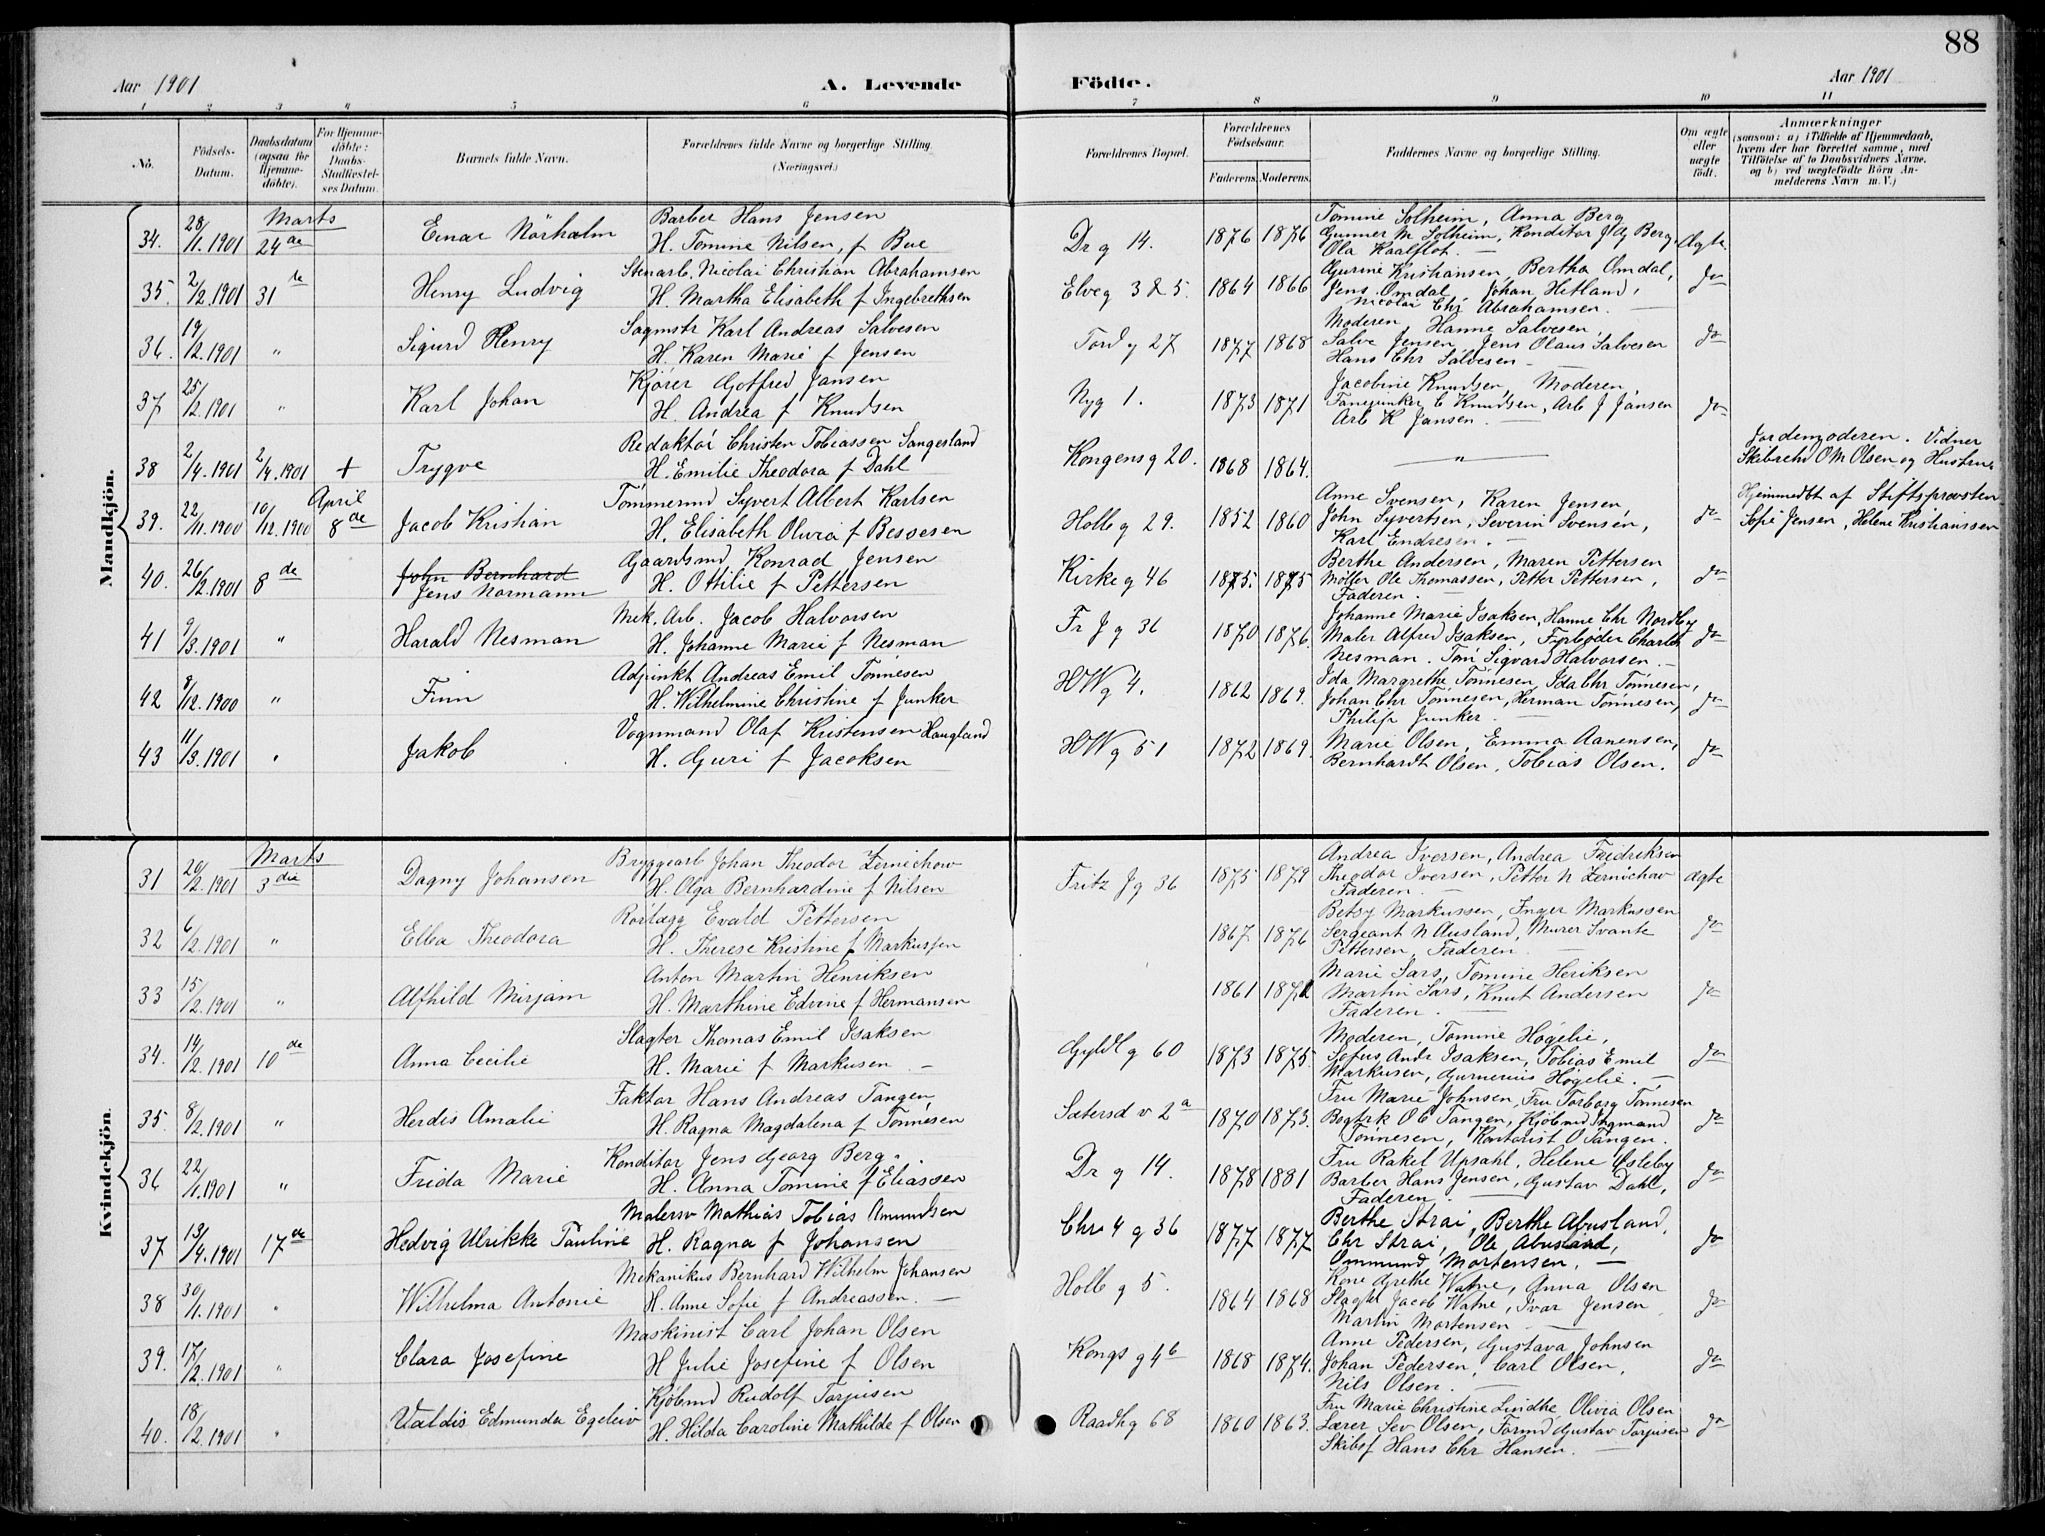 88
Aar 1901
A. Levende Födte.
Aar 1901
1 2 3 4 5 6 7 8 9 10 11
No.
Födsels-Datum.
Daabsdatum (ogsaa for Hjemme-döbte).
For Hjemme-döbte: Daabs-Stadfæstel-ses Datum.
Barnets fulde Navn.
Forældrenes fulde Navne og borgerlige Stilling (Næringsvei.)
Forældrenes Bopæl.
Forældrenes Födselsaar.
Faderens. Moderens.
Faddernes Navne og borgerlige Stilling.
Om ægte eller uægte födt.
Anmærkninger
(saasom: a) i Tilfælde af Hjemmedaab, hvem der har forrettet samme, med Tilföielse af to Daabsvidners Navne, og b) ved uægtefödte Börn An-melderens Navn m. V.)
Mandkjön.
Marts
34. 28/1 1901 24de Einar Nörholm
Barber Hans Jensen
H. Tomine Nilsen, f Bue
Dr g 14. 1876 1876
Tomine Solheim, Anna Berg
Gunner M Solheim, Konditor J G Berg
Ola Kaalflot. —
Ægte.
35. 2/2 1901 31te Henry Ludvig
Stenarb. Nicolai Christian Abrahamsen
H. Martha Elisabeth f Ingebrethsen
Elveg 3 & 5. 1864 1866
Gurine Kristiansen, Bertha Omdal,
Jens Omdal, Johan Hetland,
Nicolai Chr Abrahamsen. —
do
36. 19/2 1901 " Sigurd Henry
Sagmstr Karl Andreas Salvesen
H. Karen Marie f Jensen
Tord g 27 1877 1868
Moderen, Hanne Salvesen,
Salve Jensen, Jens Olaus Salvesen
Hans Chr Salvesen —
do
37 25/2 1901 " Karl Johan
Kjörer Gotfred Jansen
H. Andrea f Knudsen
Nyg 1. 1873 1871
Jacobine Knudsen, Moderen,
C Knudsen, Arb J Jansen
Arb K Jansen. —
do
38 2/4 1901 2/4 1901 + Trygve
Redaktör Christen Tobiassen Sangesland
H. Emilie Theodora f Dahl
Kongensg 20. 1868 1864.
— " —
Jordemoderen. Vidner
Skibsreder O M Olsen og Hustru.
39. 22/11 1900 10/12 1900 April 8de Jacob Kristian
Tömmermd Syvert Albert Karlsen
H. Elisabeth Olivia f Bessesen
Holbg 29. 1852 1860
Anne Svensen, Karen Jensen,
John Syvertsen, Severin Svensen,
Karl Endresen. —
do
Hjemmedöbt af Stiftsprovsten
Sofie Jensen, Helene Kristianssen
40. 26/2 1901 8de John Bernhard
Jens Normann
Gaardsmd Konrad Jensen
H. Ottilie f Pettersen
Kirkeg 46 1875. 1875
Berthe Andersen, Maren Pettersen
Möller Ole Thomassen, Petter Pettersen,
Faderen. —
do
41 9/3 1901 " Harald Nesman
Mek. Arb. Jacob Halvorsen
H. Johanne Marie f Nesman
Fr J g 36 1870 1876.
Johanne Marie Isaksen, Hanne Chr Nordby
Maler Alfred Isaksen, Fyrböder Charles
Nesman. Töm Sigvard Halvorsen. —
do
42 8/12 1900 " Finn
Adjunkt Andreas Emil Tönnesen
H. Wilhelmine Christine f Junker
HWg 4. 1862 1869.
Ida Margrethe Tönnesen, Ida Chr Tönnesen,
Johan Chr Tönnesen, Herman Tönnesen,
Philip Junker. —
do
43 11/3 1901 " Jakob
Vognmand Olaf Kristensen Haugland
H. Guri f Jacobsen
HWg 51 1872 1869.
Marie Olsen, Emma Aanensen,
Bernhardt Olsen, Tobias Olsen.
do
Kvindekjön.
Marts
31 20/2 1901 3die Dagny Johansen
Bryggearb Johan Theodor Zernichow
H. Olga Bernhardine f Nilsen
Fritz J g 36 1875 1879
Andrea Iversen, Andrea Fredriksen
Theodor Iversen, Petter N Zernichow
Faderen. —
ægte
32 6/2 1901 " Ella Theodora
Rörlægg Evald Pettersen
H. Therese Kristine f Markussen
1867 1876
Betsy Markussen, Inger Markussen
Sergeant N Ausland, Murer Svante
Pettersen, Faderen.
do
33 15/2 1901 " Alfhild Mirjam
Anton Martin Henriksen
H. Marthine Edvine f Hermansen
1861 1871
Marie Sars, Tomine Heriksen
Martin Sars, Knut Andersen
Faderen. —
do
34. 14/2 1901 10de Anna Cecilie
Slagter Thomas Emil Isaksen
H. Marie f Markusen. —
Gyldl g 60 1873 1875.
Moderen, Tomine Högelie,
Sofus Andr Isaksen, Tobias Emil
Markusen, Gumerius Högelie. —
do
35. 8/2 1901 " Herdis Amalie
Faktor Hans Andreas Tangen
H. Ragna Magdalena f Tönnesen
Sætersd v 2a 1870 1873.
Fru Marie Johnsen, Fru Torborg Tönnesen
Bogtrk O C Tangen, Kjöbmd Ingmand
Tönnesen, Kontorist O Tangen.
do
36 22/1 1901 " Frida Marie
Konditor Jens Georg Berg.
H. Anna Tomine f Eliassen
Dr g 14. 1878 1881
Fru Rakel Upsahl, Helene Østeby
Barber Hans Jensen, Gustav Dahl,
Faderen. —
do
37 13/4 1901 17de Hedvig Ulrikke Pauline
Malersv Mathias Tobias Amundsen
H. Ragna f Johansen
Chr 4 g 36 1877 1877
Berthe Strai, Berthe Abusland,
Chr Strai, Ole Abusland,
Ommund Mortensen. —
do
38 30/1 1901 " Wilhelma Antonie
Mekanikus Bernhard Wilhelm Johansen
H. Anne Sofie f Andreassen. —
Holb g 5. 1864 1868
Kone Grethe Watne, Anna Olsen
Slagter Jacob Watne, Ivar Jensen
Martin Mortensen —
do
39. 17/2 1901 " Clara Josefine
Maskinist Carl Johan Olsen
H Julie Josefine f Olsen
Kongs g 46 1868 1874.
Anne Pedersen, Gustava Johnsen
Johan Pedersen, Carl Olsen,
Nils Olsen. —
do
40. 18/2 1901 " Valdis Edmunda Egeleiv
Kjöbmd Rudolf Torjusen
H. Hilda Caroline Mathilde f Olsen
Raadhg 68 1860 1863.
Fru Marie Christine Lindtke, Olivia Olsen
Lærer Sev Olsen, Formd Gustav Torjusen
Skibsf Hans Chr Hansen. —
do